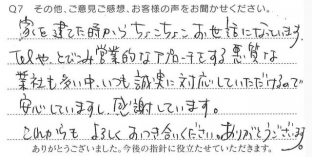 Q7 その他、ご意見ご感想、お客様の声をお聞かせください。
家を建てた時からちょこちょこお世話になっています。
TELや、とびこみ営業的なアプローチをする悪質な
業社も多い中、いつも誠実に対応していただけるので
安心していますし、感謝しています。
これからもよろしくおつき合いください。ありがとうございます。
ありがとうございました。今後の指針に役立たせていただきます。